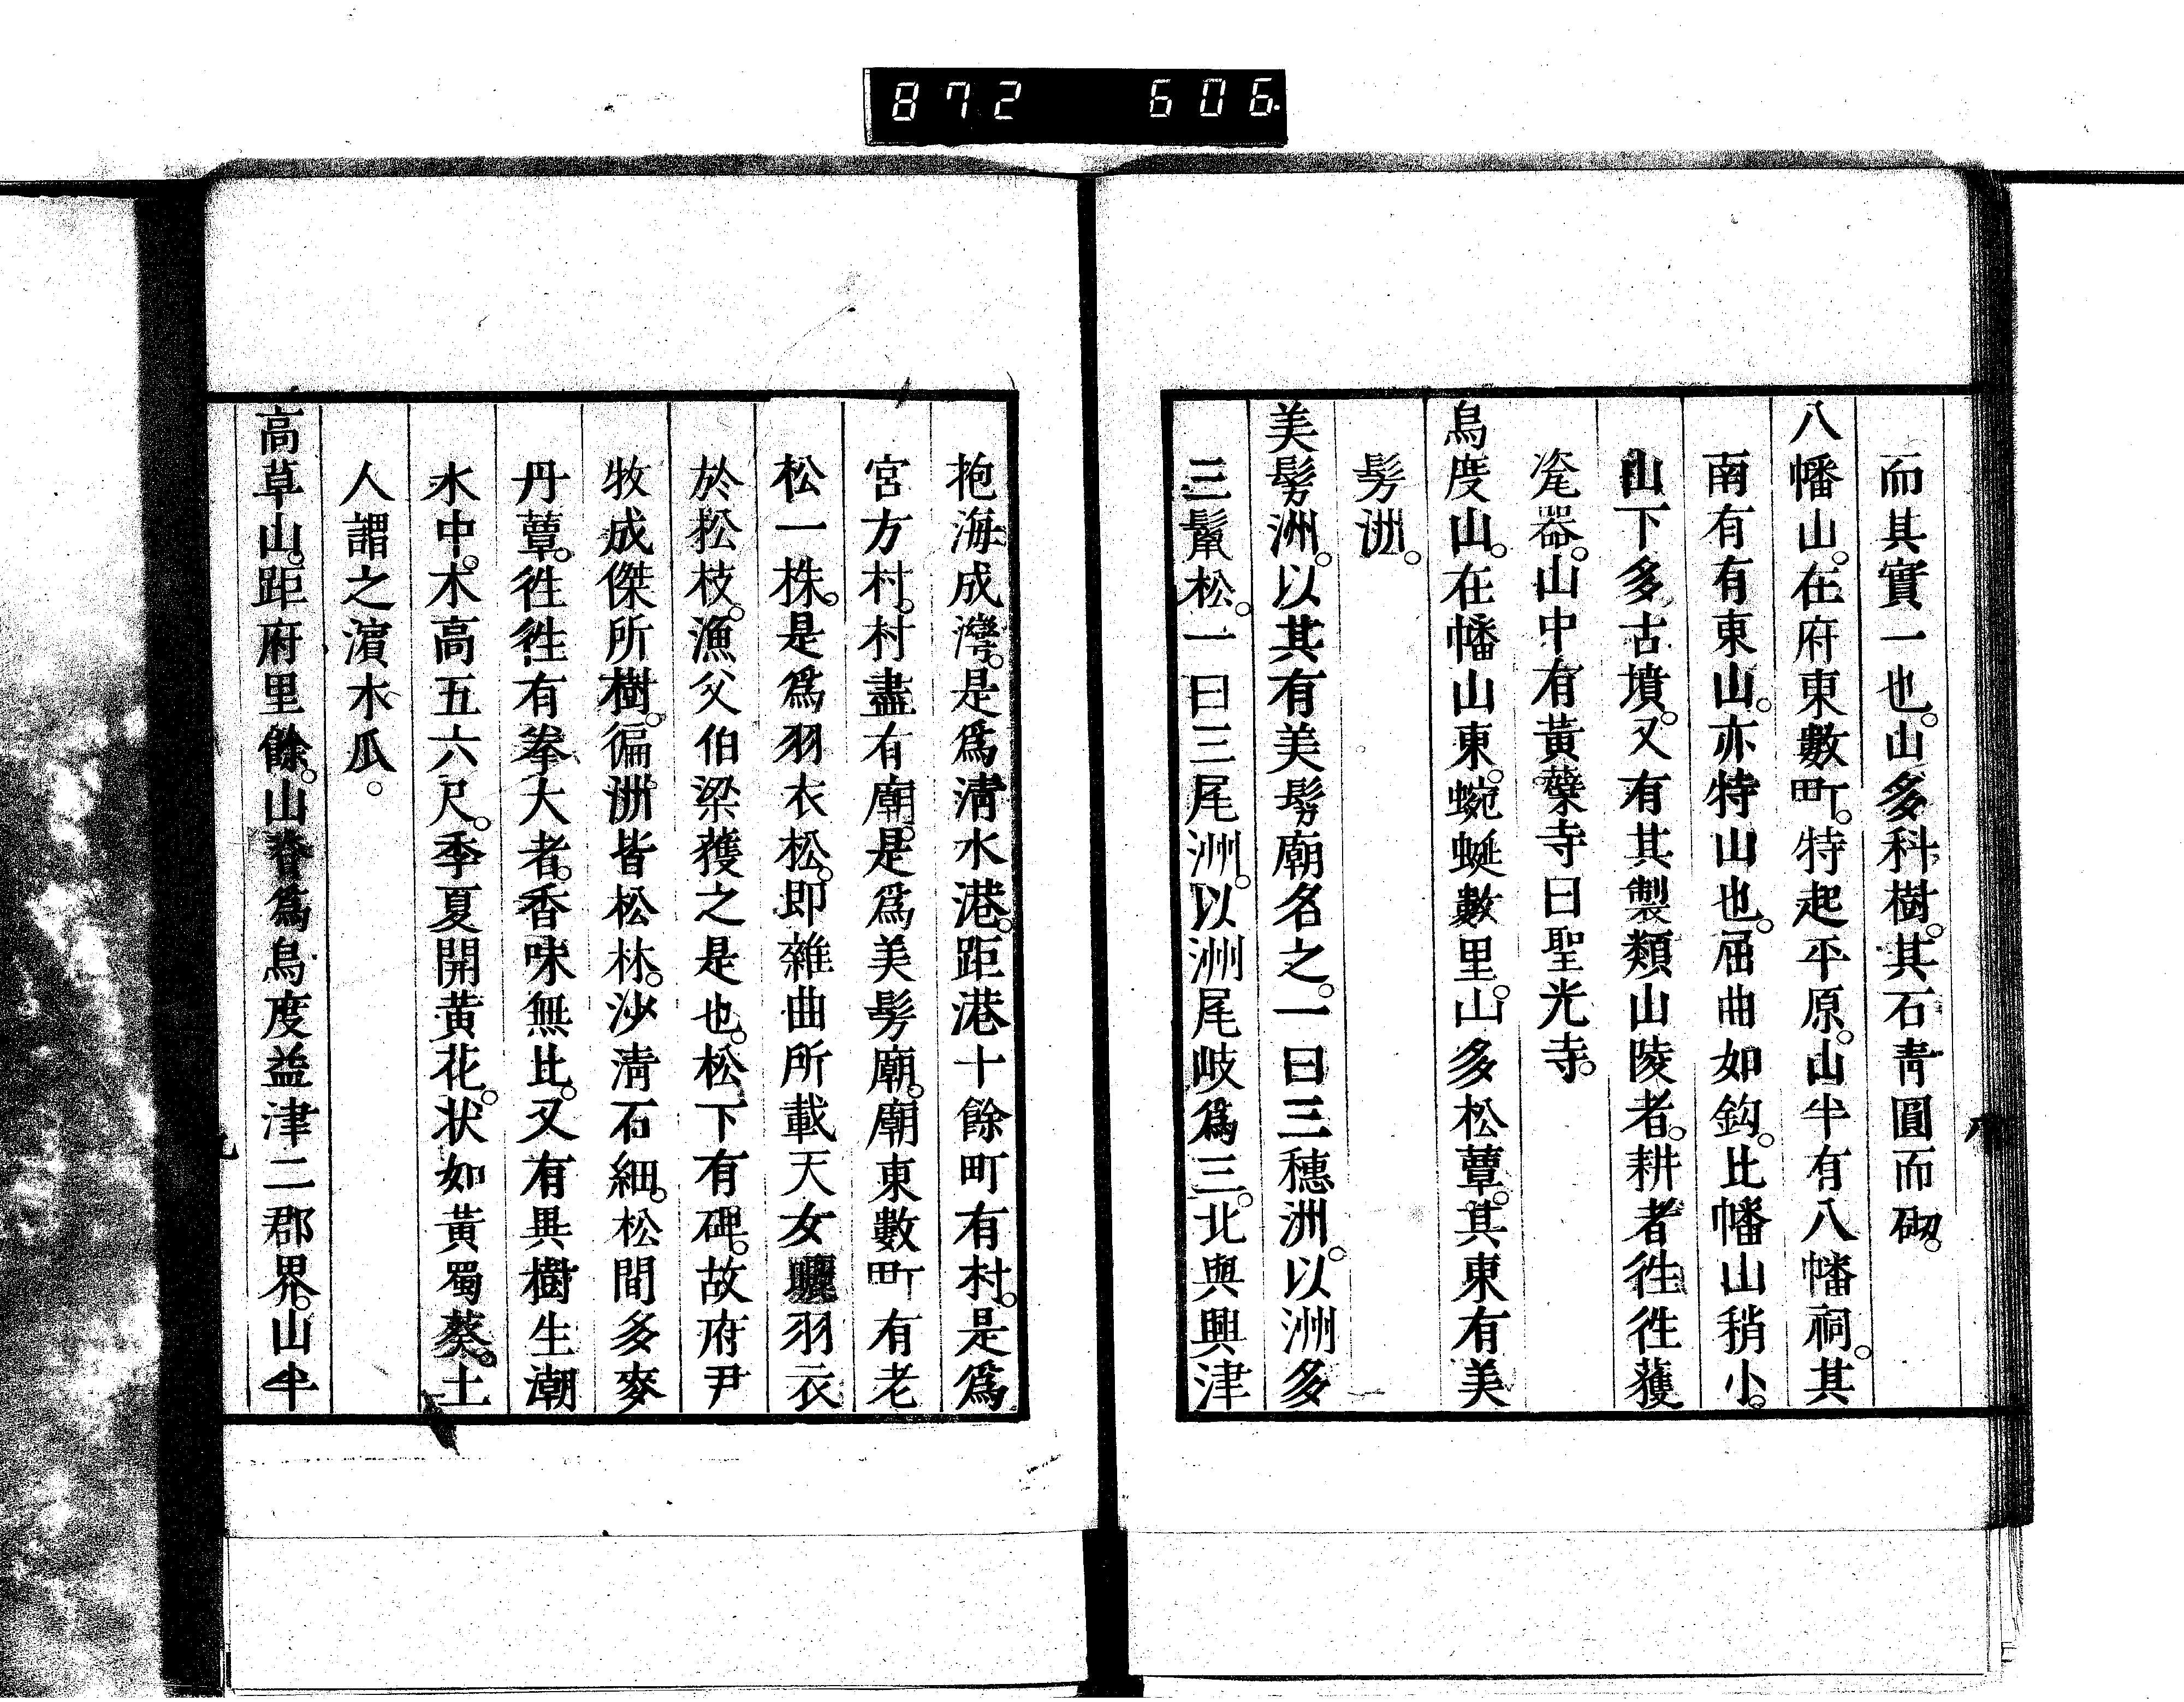 872 606.
而其實一也。山多科樹。其石青圓而砌。
八幡山。在府東數町。特起平原。山半有八幡祠。其
南有有東山。亦特山也。屈曲如鈎。比幡山稍小。
山下多古墳。又有其製類山陵者。耕者徃徃獲
瓷器。山中有黃蘗寺曰聖光寺。
烏度山。在幡山東。蜿蜒數里。山多松蕈。其東有美
髣洲。
美髣洲。以其有美髣廟名之。一曰三穗洲。以洲多
三鬣松。一曰三尾洲。以洲尾岐爲三。北與興津
抱海成灣。是爲淸水港。距港十餘町有村。是爲
宮方村。村盡有廟。是爲美髣廟。廟東數町有老
松一株。是爲羽衣松。卽雜曲所載天女曬羽衣
於松枝。漁父伯梁獲之是也。松下有碑。故府尹
牧成傑所樹。徧洲皆松林。沙淸石細。松間多麥
丹蕈。徃徃有拳大者。香味無比。又有異樹生潮
水中。木高五六尺。季夏開黃花。状如黃蜀葵。土
人謂之濵木瓜。
高草山。距府里餘。山脊爲烏度益津二郡界。山半